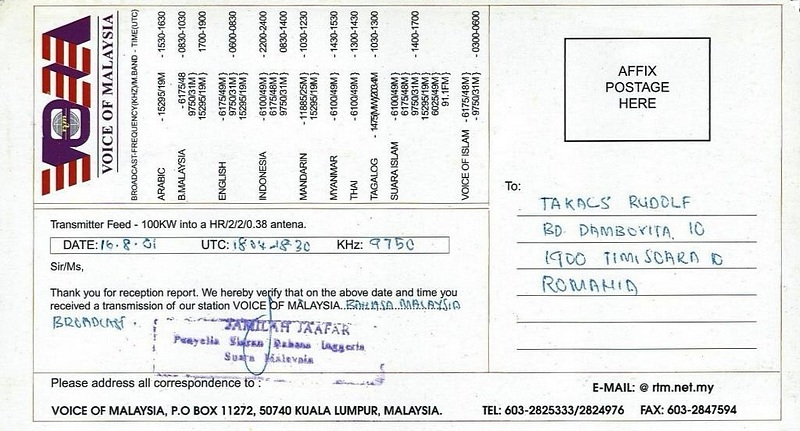 VOICE OF MALAYSIA
BROADCAST-FREQUENCY(KHZ)/M.BAND - TIME(UTC)
ARABIC - 15295/19M - 1530-1630
B.MALAYSIA - 6175/48 - 0830-1030
9750/31M}
15295/19M} 1700-1900
ENGLISH - 6175/49M} - 0600-0830
9750/31M}
15295/19M}
INDONESIA - 6100/49M} - 2200-2400
6175/48M} 0830-1400
9750/31M}
MANDARIN - 11885/25M} - 1030-1230
15295/19M}
MYANMAR - 6100/49M} - 1430-1530
THAI - 6100/49M} - 1300-1430
TAGALOG - 1030-1300
SUARA ISLAM - 6100/49M}
6175/48M}
9750/31M} - 1400-1700
15295/19M}
6025/49M}
91.1FM}
VOICE OF ISLAM - 6175/48M} - 0300-0600
- 9750/31M}
Transmitter Feed - 100KW into a HR/2/2/0.38 antena.
DATE: 16.8.01 UTC: 1804-1830 KHz: 9750
Sir/Ms,
Thank you for reception report. We hereby verify that on the above date and time you
received a transmission of our station VOICE OF MALAYSIA. BAHASA MALAYSIA
BROADCAST.
JAMILAH JAAFAR
Penyelia Siaran Bahasa Inggeris
Suara Malaysia
Please address all correspondence to :
VOICE OF MALAYSIA, P.O BOX 11272, 50740 KUALA LUMPUR, MALAYSIA.
AFFIX
POSTAGE
HERE
To:
TAKACS RUDOLF
BD. DAMBOVITA 10
1900 TIMISOARA
ROMANIA
E-MAIL: @ rtm.net.my
TEL: 603-2825333/2824976 FAX: 603-2847594